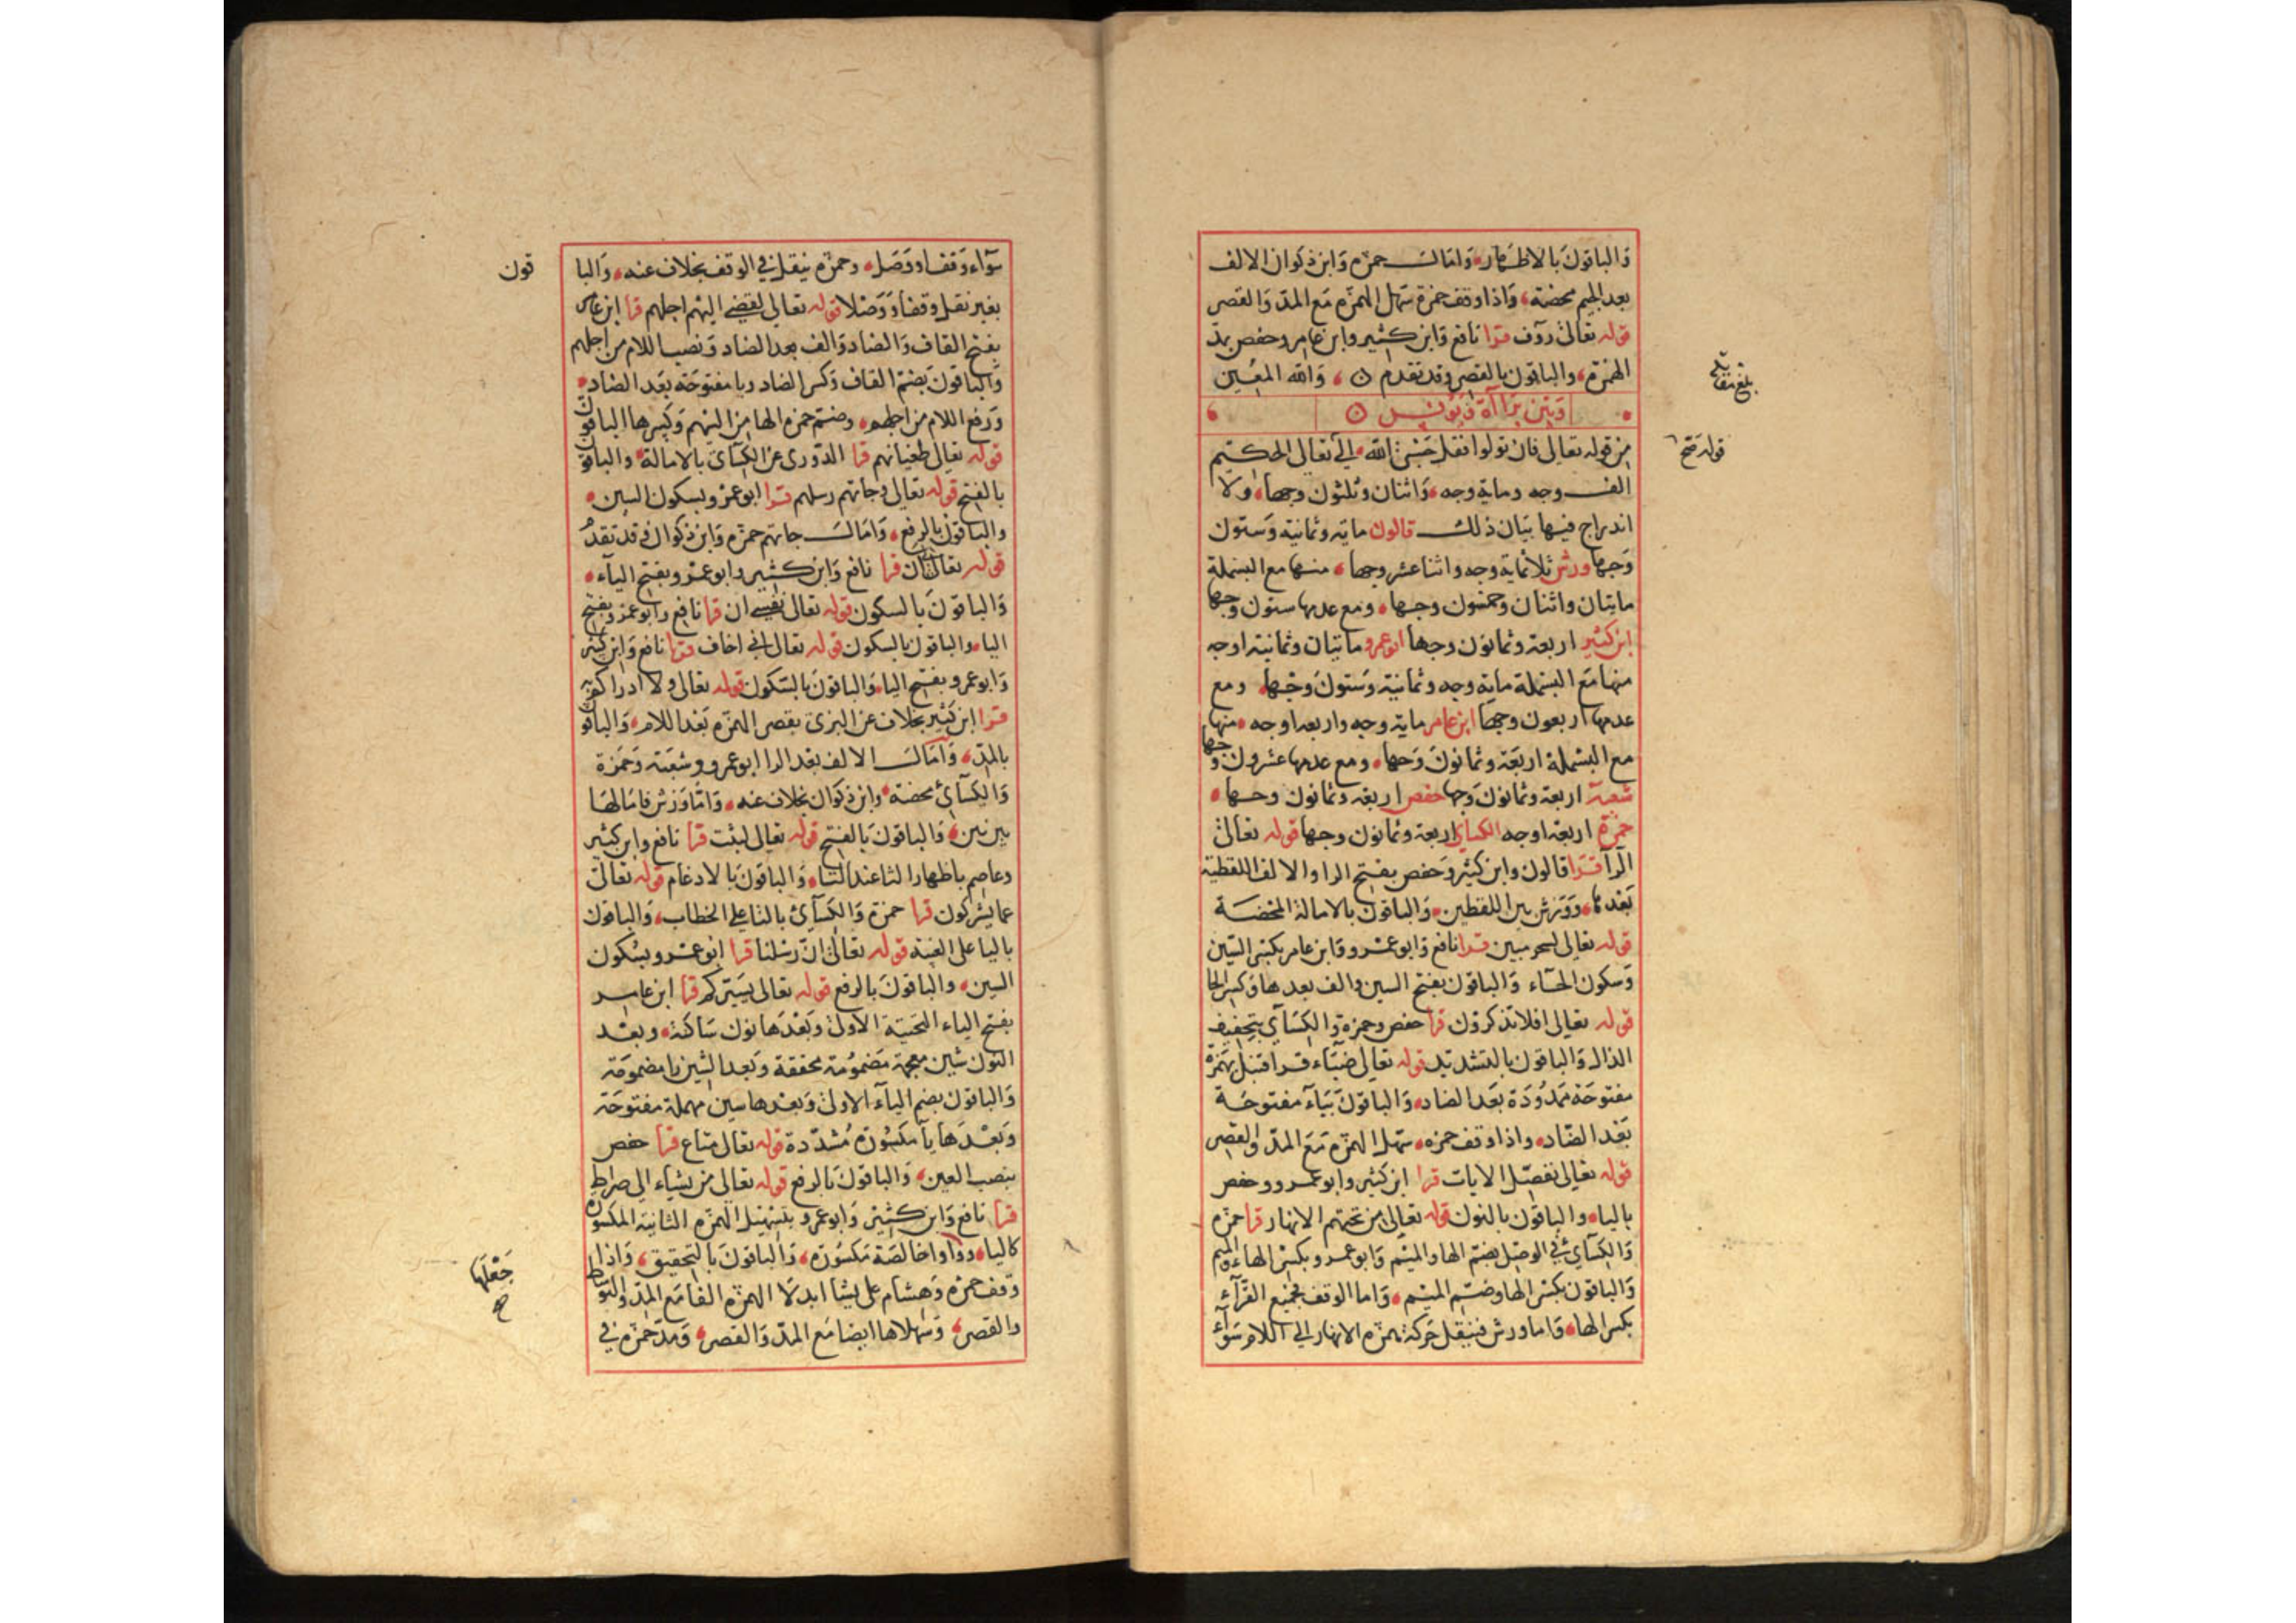 والباقون بالاظهار وامال حمزه وابن ذكوان الالف
بعد الجيم محضة واذا وقف حمزة سهل الهمزه مع المد والقصر
قوله تعالى روف قرا نافع وابن كثير وابن عامر وحفص بمد
الهمزه والباقون بالقصر وقد تقدم والله المعين
بلغ مقابلة
وبين براآة ويونس
من قوله تعالى فان تولوا فقل حسبي الله الي تعالى الحكيم
قوله
الف وجه وماية وجه واثنان وثلثون وجها ولا
اندراج فيها بيان ذلك قالون مايه وثمانية وستون
وجها ورش ثلاثماية وجه واثنا عشر وجها منها مع البسملة
مايتان واثنان وخمسون وجها ومع عدمها ستون وجها
ابن كثير اربعة وثمانون وجها ابو عمرو مايتان وثمانية اوجه
منها مع البسملة ماية وجه وثمانية وستون وجها ومع
عدمها اربعون وجها ابن عامر ماية وجه واربعه اوجه منها
مع البسملة اربعة وثمانون وجها ومع عدمها عشرون وجها
شعبة اربعة وثمانون وجها حفص اربعة وثمانون وجها
حمزة اربعة اوجه الكساي اربعة وثمانون وجها قوله تعالى
الرآ قرا قالون وابن كثير وحفص بفتح الرا والالف اللفظية
بعدها وورش بين اللفظين والباقون بالامالة المحضة
قوله تعالى لسحر مبين قرا نافع وابو عمرو وابن عامر بكسر السين
وسكون الحاء والباقون بفتح السين والف بعدها وكسر الحا
قوله تعالى افلا تذكرون قرا حفص وحمزة والكساي بتخفيف
الذال والباقون بالتشديد قوله تعالى ضياء قرا قنبل بهمزة
مفتوحة ممدودة بعد الضاد والباقون بياء مفتوحة
بعد الضاد واذا وقف حمزه سهل الهمزه مع المد والقصر
قوله تعالى نفصل الايات قرا ابن كثير وابو عمرو وحفص
باليا والباقون بالنون قوله تعالى من تحتهم الانهار قرا حمزه
والكساي في الوصل بضم الها والميم وابو عمرو بكسر الهاء والميم
والباقون بكسر الها وضم الميم واما الوقف فجميع القرآء
بكسر الها واما ورش فينقل حركة همزه الانهار الي اللام سوآء
سوآء وقف او وصل وحمزه ينقل في الوقف بخلاف عنه والبا
قون
بغير نقل وقفا ووصلا قوله تعالى لقضي اليهم اجلهم قرا ابن عامر
بفتح القاف والضاد والف بعد الضاد ونصب اللام من اجلهم
والباقون بضم القاف وكسر الضاد ويا مفتوحة بعد الضاد
ورفع اللام من اجلهم وضم حمزه الها من اليهم وكسرها الباقون
قوله تعالى طغيانهم قرا الدوري عن الكساي بالامالة والباقون
بالفتح قوله تعالى وجاتهم رسلهم قرا ابو عمرو بسكون السين
والباقون بالرفع وامال جاتهم حمزه وابن ذكوان وقد تقدم
قوله تعالى قرا نافع وابن كثير وابو عمرو بفتح اليآء
والباقون بالسكون قوله تعالى نفسي ان قرا نافع وابو عمرو بفتح
اليا والباقون بالسكون قوله تعالى اني اخاف قرا نافع وابن كثير
وابو عمرو بفتح اليا والباقون بالسكون قوله تعالى ولا ادراكم به
قرا ابن كثير بخلاف عن البزي بقصر الهمزه بعد اللام والباقون
بالمد وامال الالف بعد الرا ابو عمرو وشعبة وحمزة
والكساي محضة وابن ذكوان بخلاف عنه واما ورش فامالها
بين بين والباقون بالفتح قوله تعالى لبثت قرا نافع وابن كثير
وعاصم باظهار الثا عند التا والباقون بالادغام قوله تعالى
عما يشركون قرا حمزة والكساي بالتا على الخطاب والباقون
باليا على الغيبة قوله تعالى ان رسلنا قرا ابو عمرو بسكون
السين والباقون بالرفع قوله تعالى يسيركم قرا ابن عامر
بفتح الياء التحتية الاولى وبعدها نون ساكنة وبعد
النون شين معجمة مضمومة مخففة وبعد الشين را مضمومة
والباقون بضم اليآء الاولى وبعدها سين مهملة مفتوحة
وبعدها يآ مكسورة مشددة قوله تعالى متاع قرا حفص
بنصب العين والباقون بالرفع قوله تعالى من يشاء الي صراط
قرا نافع وابن كثير وابو عمرو بتسهيل الهمزه الثانية المكسورة
كاليا وواوا خالصة مكسورة والباقون بالتحقيق واذا
جعلها
وقف حمزه وهشام على يشا ابدلا الهمزه الفا مع المد والتوسط
والقصر وسهلاها ايضا مع المد والقصر ومد حمزه في